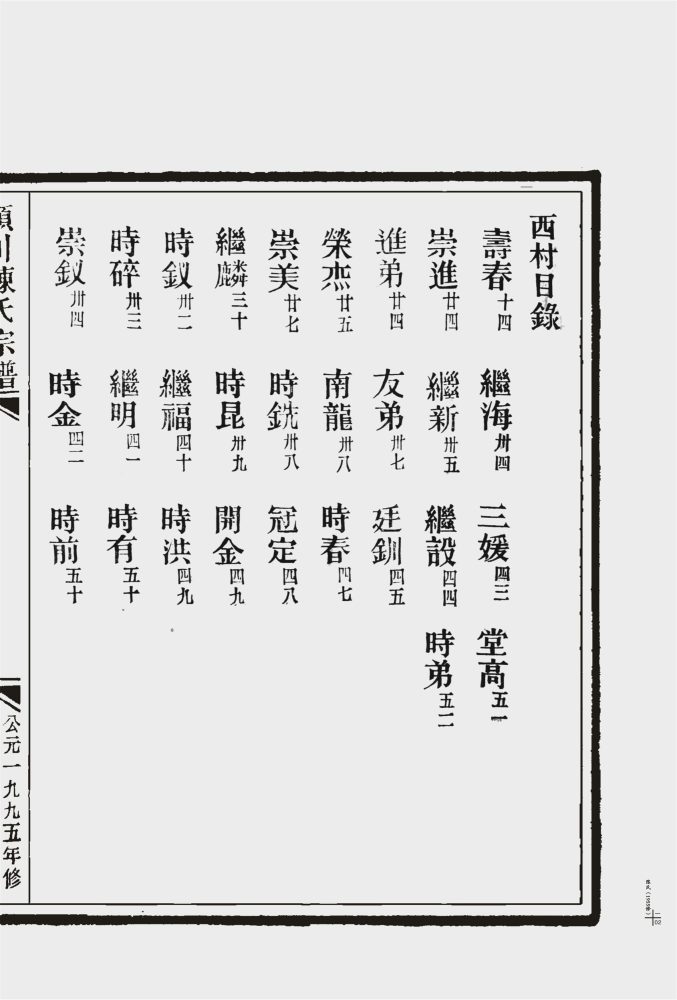 西村目錄
壽春十四 繼海卅四 三媛四三 堂高五一
崇進廿四 繼新卅五 繼設四四 時弟五二
進弟廿四 友弟卅七 廷釧四五
榮杰廿五 南龍卅八 時春四七
崇美廿七 時銑卅八 冠定四八
繼麟三十 時昆卅九 開金四九
時釵卅二 繼福四十 時洪四九
時碎卅三 繼明四一 時有五十
崇釵卅四 時金四二 時前五十
川陳氏宗譜
公元一九九五年修